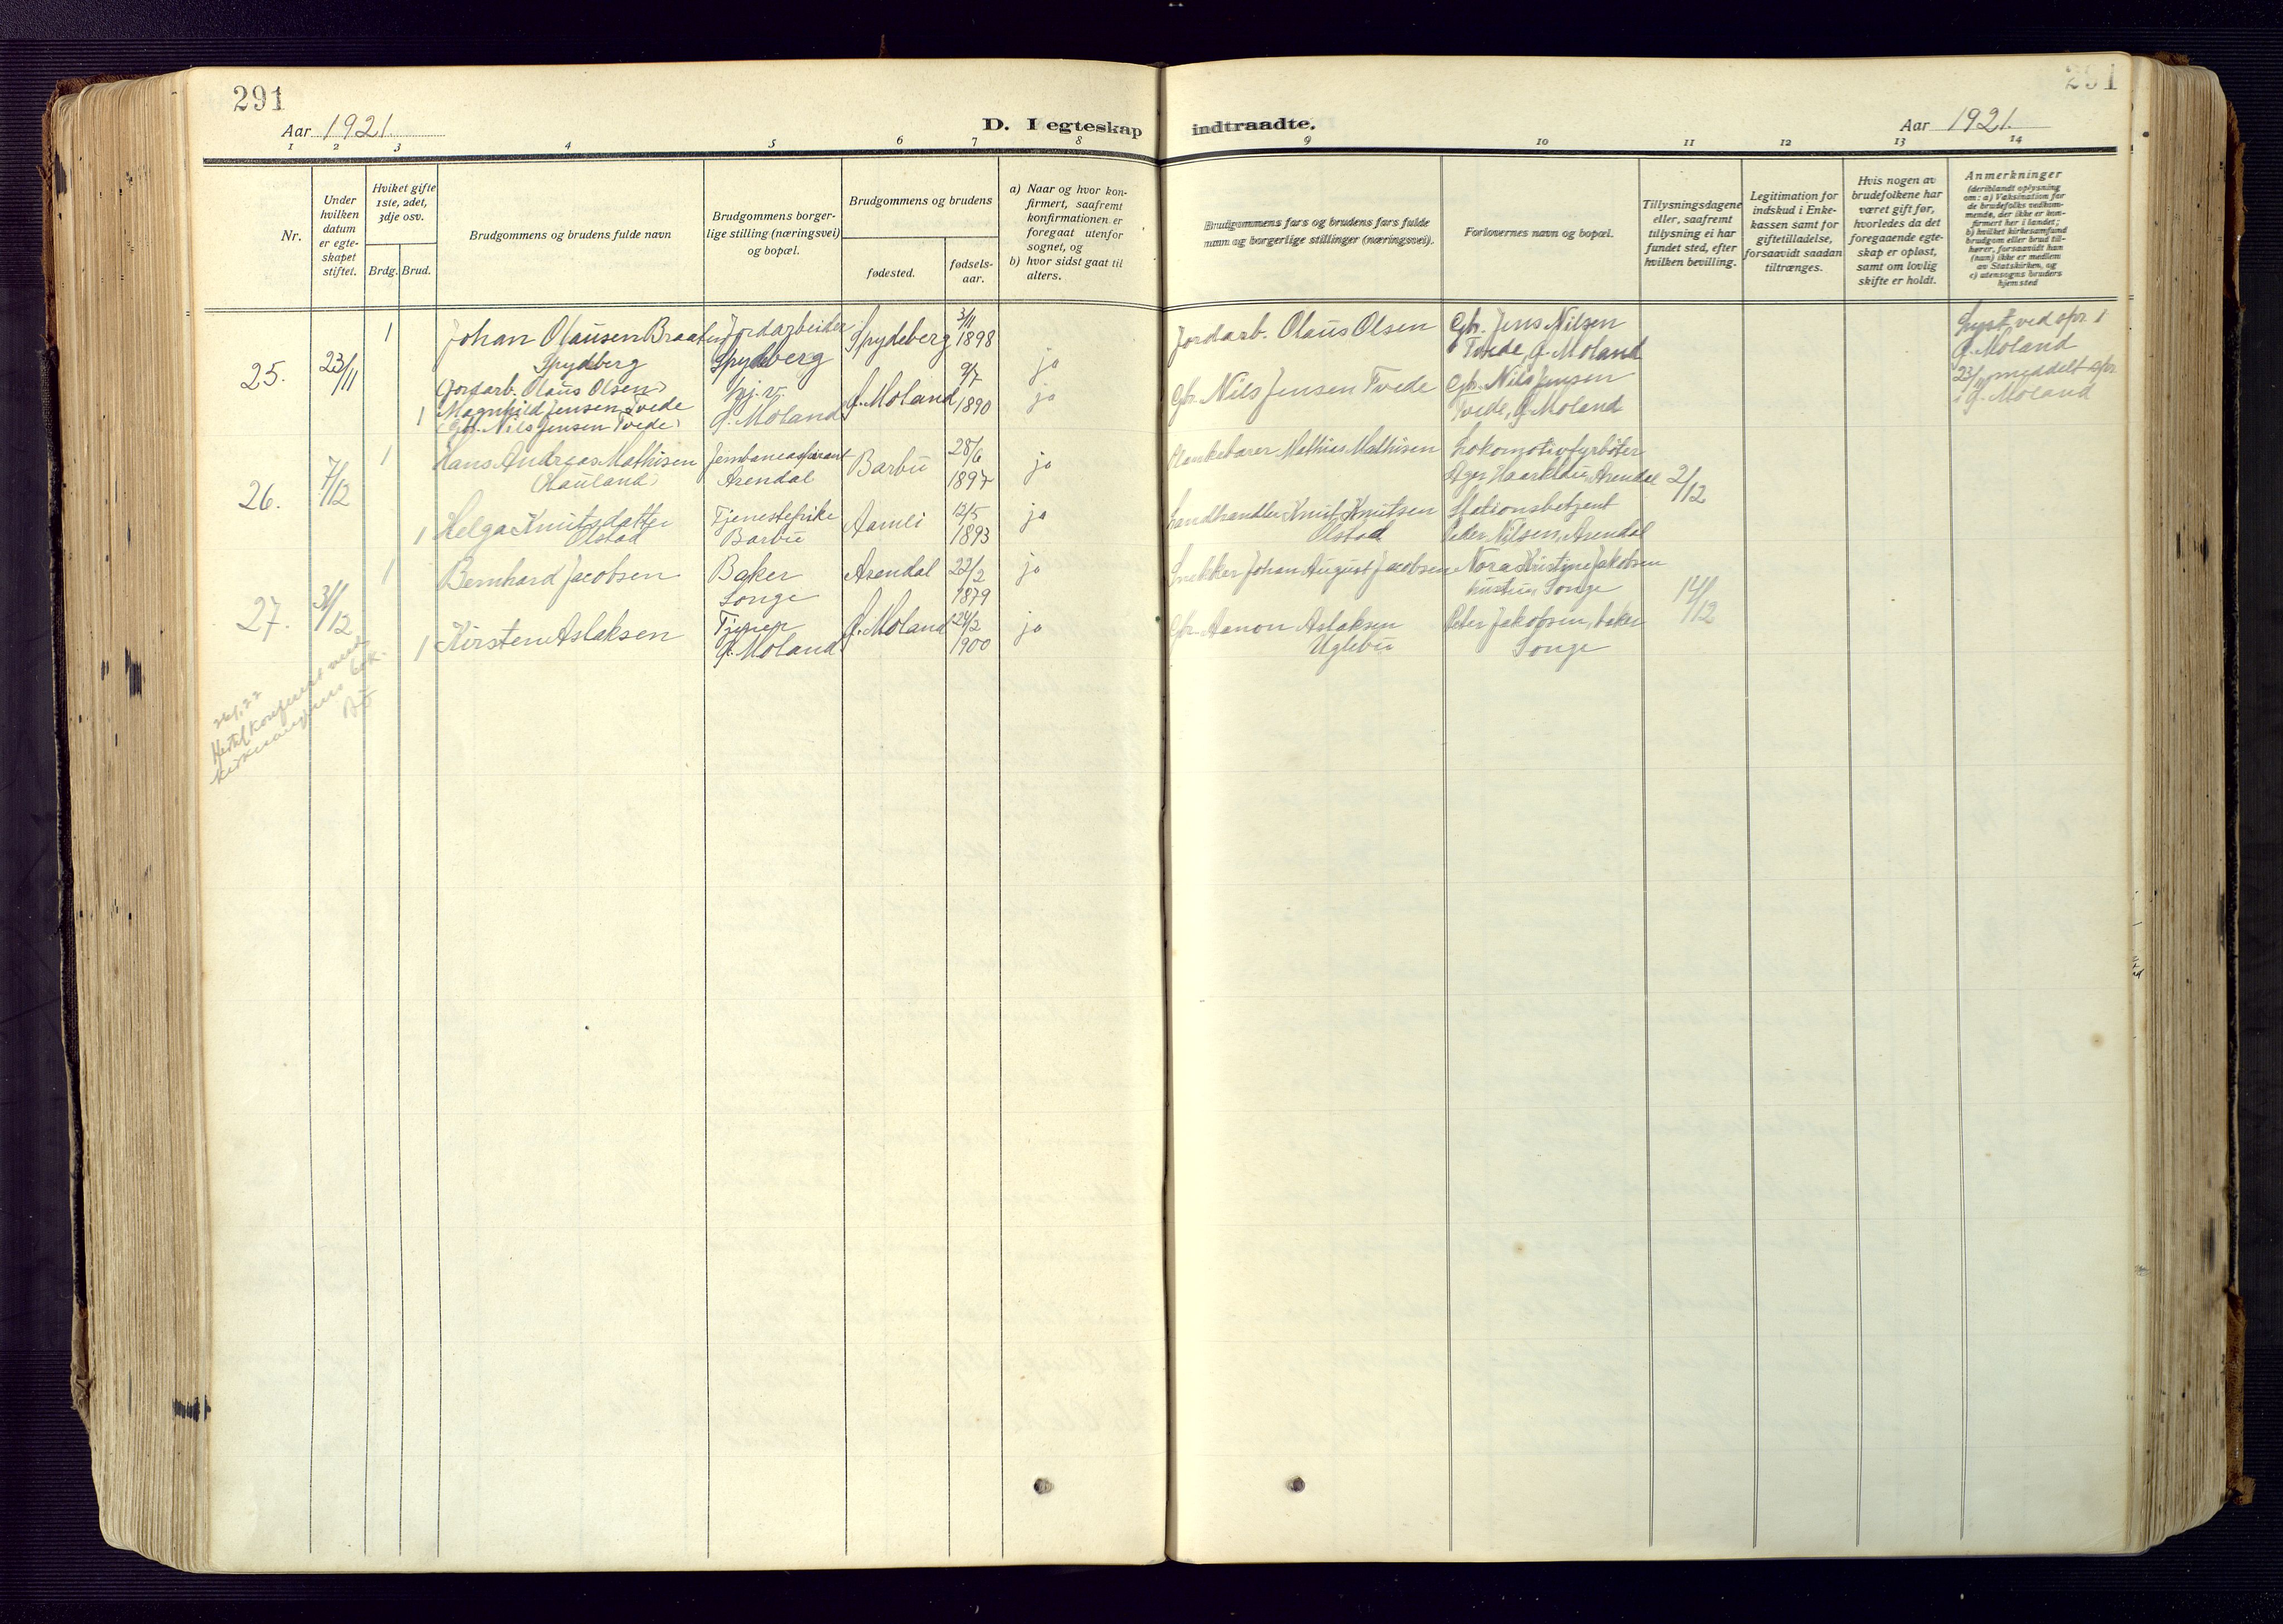 291
291
Aar 1921.
D. I egteskap indtraadte.
Aar 1921.
1 2 3 4 5 6 7 8 9 10 11 12 13 14
Nr.
Under
hvilken
datum
er egte-
skapet
stiftet.
Hviket gifte
1ste, 2det,
3dje osv.
Brdg. Brud.
Brudgommens og brudens fulde navn
Brudgommens borger-
lige stilling (næringsvei)
og bopæl.
Brudgommens og brudens
fødested.
fødsels-
aar.
a) Naar og hvor kon-
firmert, saafremt
konfirmationen er
foregaat utenfor
sognet, og
b) hvor sidst gaat til
alters.
Brudgommens fars og brudens fars fulde
navn og borgerlige stillinger (næringsvei).
Forlovernes navn og bopæl.
Tillysningsdagene
eller, saafremt
tillysning ei har
fundet sted, efter
hvilken bevilling.
Legitimation for
indskud i Enke-
kassen samt for
giftetilladelse,
forsaavidt saadan
tiltrænges.
Hvis nogen av
brudefolkene har
været gift før,
hvorledes da det
foregaaende egte-
skap er opløst,
samt om lovlig
skifte er holdt.
Anmerkninger
(deriblandt oplysning
om: a) Vaksination for
de brudefolks vedkom-
mende, der ikke er kon-
firmert her i landet;
b) hvilket kirkesamfund
brudgom eller brud til-
hører, forsaavidt han
(hun) ikke er medlem
av Statskirken, og
c) utensogns bruders
hjemsted
25.
23/11
1
Johan Olausen Braaten
Spydberg
(Jordarb. Olaus Olsen)
Jordarbeider
Spydeberg
Spydeberg
3/11
1898
ja
Jordarb. Olaus Olsen
Gbr. Jens Nilsen
Tvede, Ø. Moland
Lyst ved spr. i
Ø. Moland
23/11 meddelt spr.
i Ø. Moland
1
Magnhild Jensen Tvede
(Gbr. Nils Jensen Tvede)
Ø. Moland
Ø. Moland
9/7
1890
ja
Gbr. Nils Jensen Tvede
Gbr. Nils Jensen
Tvede, Ø. Moland
26.
7/12
1
Hans Andreas Mathisen
(Lauland)
Jernbaneaspirant
Arendal
Barbu
28/6
1897
ja
Plankebærer Mathias Mathisen
Lokomotivfyrbøter
Arendal
2/12
1
Helga Knutsdatter
Olstad
Tjenestepike
Barbu
Aamli
12/5
1893
ja
Landhandler Knut Knutsen
Olstad
Stationsbetjent
Peder Nilsen, Arendal
27.
31/12
1
Bernhard Jacobsen
Baker
Songe
Arendal
22/2
1879
ja
Snekker Johan August Jacobsen
Nora Kristine Jakobsen
hustru, Songe
14/12
1
Kirsten Aslaksen
Ø. Moland
Ø. Moland
24/2
1900
ja
Gbr. Aanon Aslaksen
Uglebu
Peter Jakobsen, baker
Songe